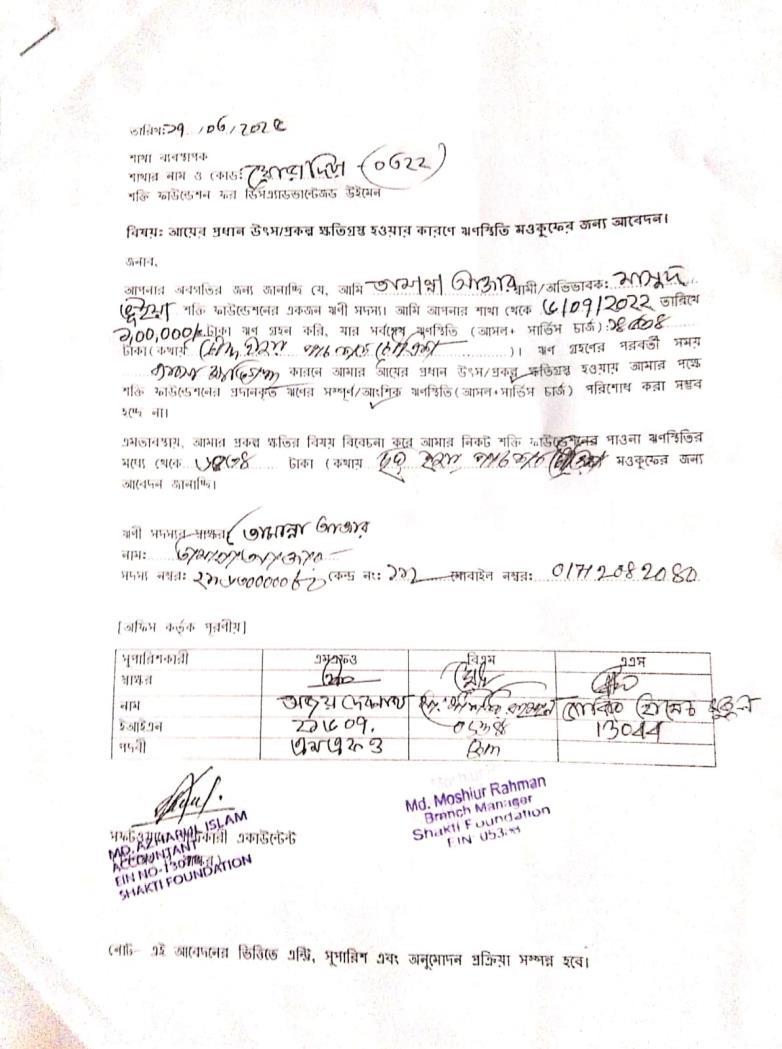 তারিখঃ ২৭/০৬/২০২৫
শাখা ব্যবস্থাপক
শাখার নাম ও কোডঃ (০৬২২)
শক্তি ফাউন্ডেশন ফর ডিসএ্যাডভান্টেজড উইমেন
বিষয়ঃ আয়ের প্রধান উৎস/প্রকল্প ক্ষতিগ্রস্ত হওয়ার কারণে ঋণস্থিতি মওকুফের জন্য আবেদন।
জনাব,
আপনার অবগতির জন্য জানাচ্ছি যে, আমি তামান্না আক্তার স্বামী/অভিভাবক: মাসুদ
ভূইয়া শক্তি ফাউন্ডেশনের একজন ঋণী সদস্য। আমি আপনার শাখা থেকে ৬/০৭/২০২২ তারিখে
টাকা ঋণ গ্রহন করি, যার সর্বশেষ ঋণস্থিতি (আসল+ সার্ভিস চার্জ):
টাকা (কথায় চৌদ্দ হাজার পাঁচ শত চৌত্রিশ )। ঋণ গ্রহণের পরবর্তী সময়
কারনে আমার আয়ের প্রধান উৎস/প্রকল্প ক্ষতিগ্রস্ত হওয়ায় আমার পক্ষে
শক্তি ফাউন্ডেশনের প্রদানকৃত ঋণের সম্পূর্ণ/আংশিক ঋণস্থিতি (আসল+সার্ভিস চার্জ) পরিশোধ করা সম্ভব
হচ্ছে না।
এমতাবস্থায়, আমার প্রকল্প ক্ষতির বিষয় বিবেচনা করে আমার নিকট শক্তি ফাউন্ডেশনের পাওনা ঋণস্থিতির
মধ্যে থেকে টাকা (কথায় হাজার পাঁচ শত চৌত্রিশ মওকুফের জন্য
আবেদন জানাচ্ছি।
ঋণী সদস্যর স্বাক্ষর: তামান্না আক্তার
নাম: তামান্না আক্তার
সদস্য নম্বরঃ কেন্দ্র নং: মোবাইল নম্বরঃ 01712082080
[অফিস কর্তৃক পূরণীয়]
সুপারিশকারী এমএফও বিএম এএস
স্বাক্ষর
নাম অজয় দেবনাথ
ইআইএন 13044
পদবী এমএফও Bm
সফটওয়্যার একাউন্টেন্ট
MD. AZHARUL ISLAM
ACCOUNTANT
EIN NO-13070
SHAKTI FOUNDATION
Md. Moshiur Rahman
Branch Manager
Shakti Foundation
নোট- এই আবেদনের ভিত্তিতে এন্ট্রি, সুপারিশ এবং অনুমোদন প্রক্রিয়া সম্পন্ন হবে।